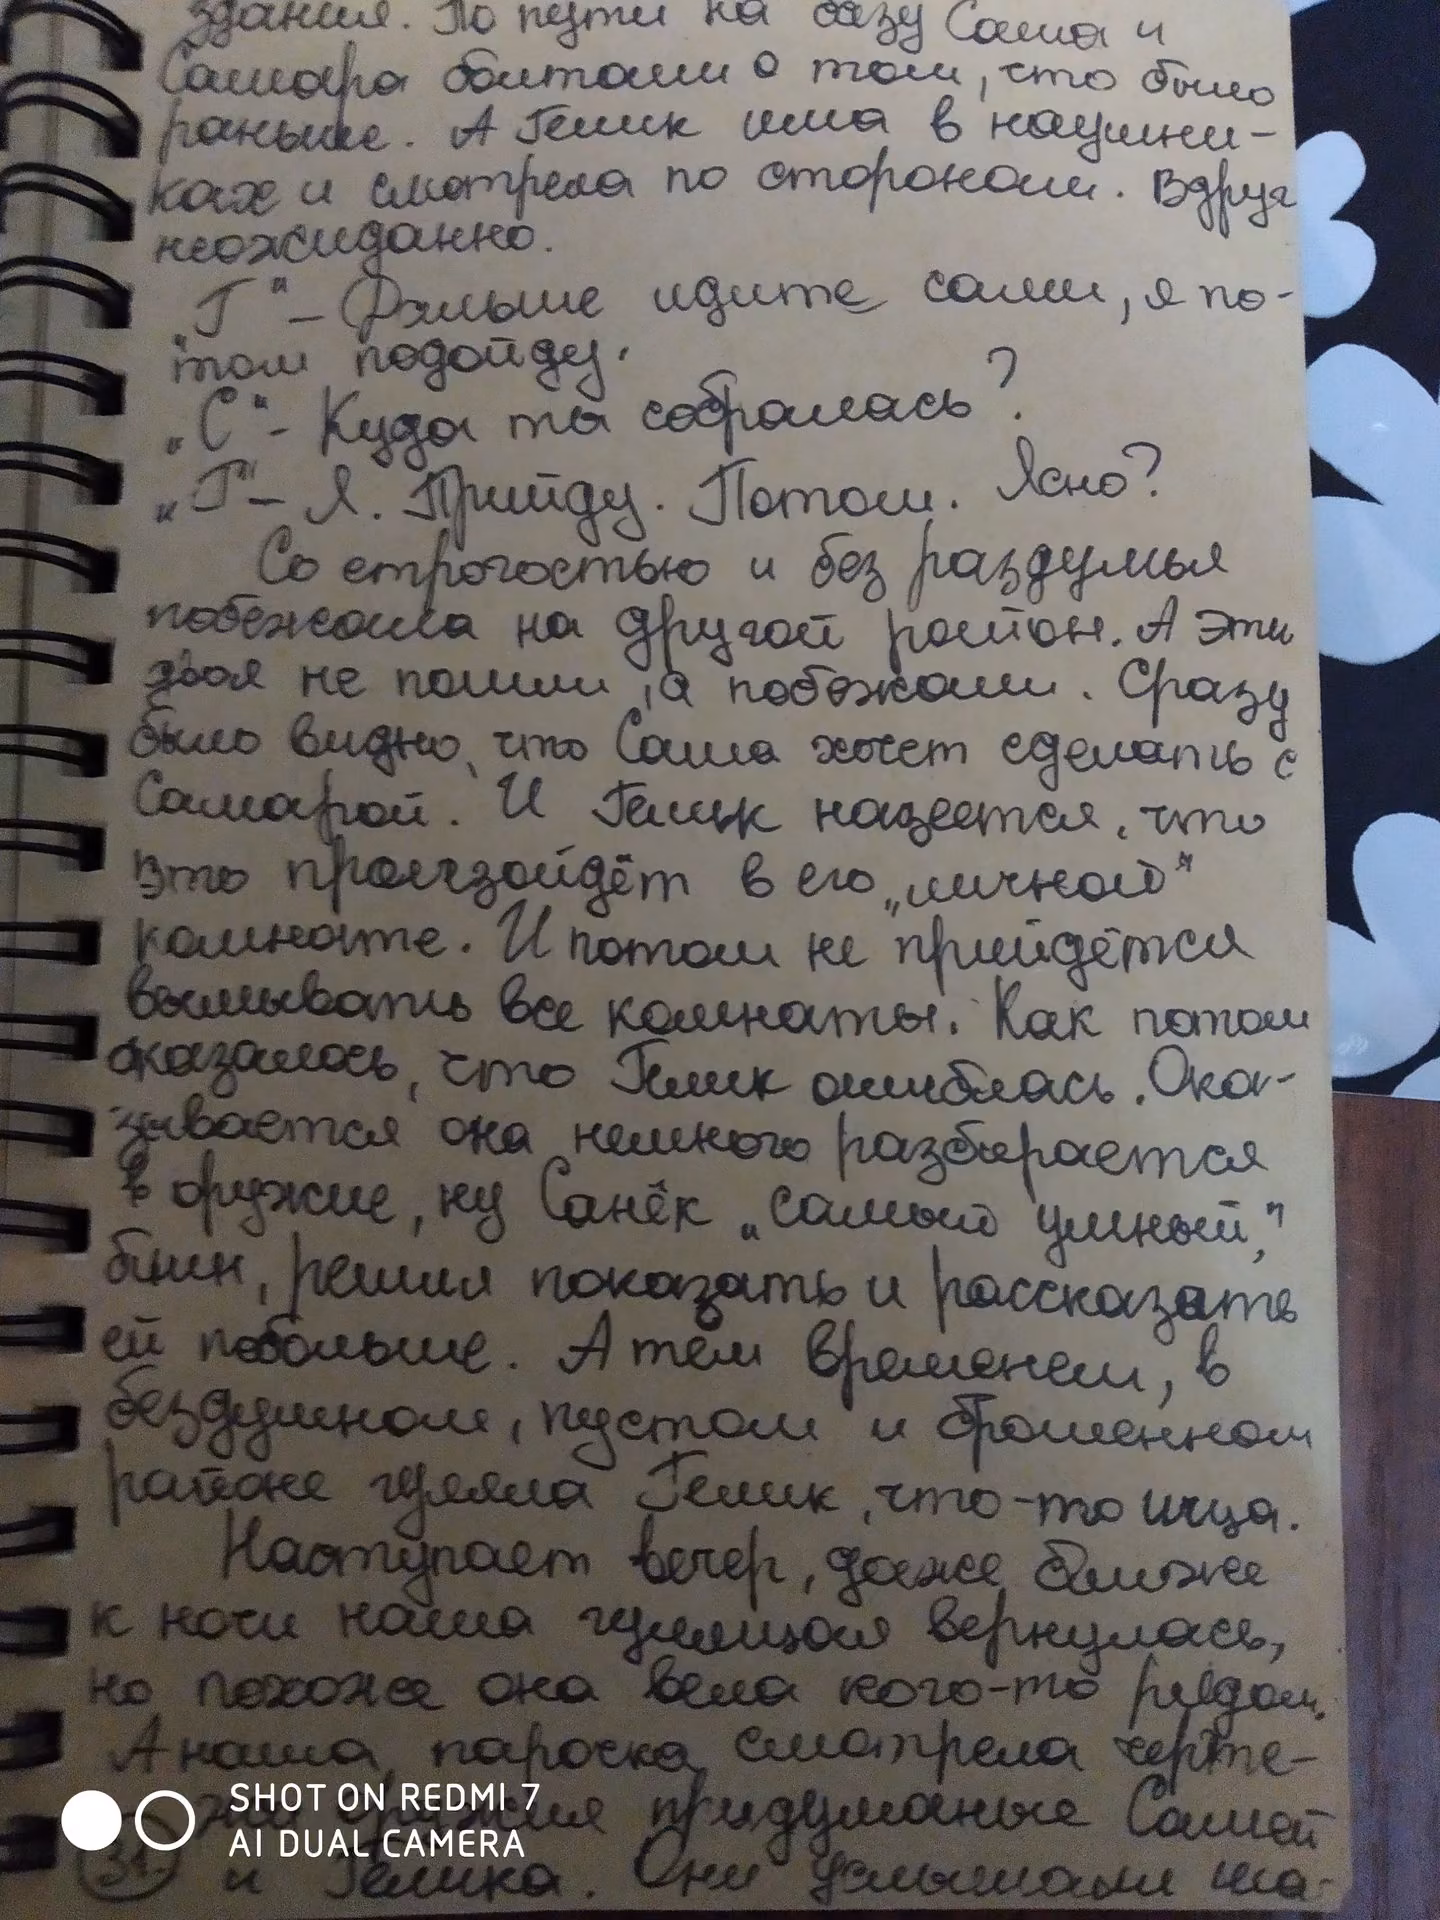 здания. По пути на базу Саша и
Самара болтали о том, что было
раньше. А Гелик шла в наушни-
ках и смотрела по сторонам. Вдруг
неожиданно.
„Г“ – Дальше идите сами, я по-
том подойду.
„С“ - Куда ты собралась?
„Г“ – Я. Прийду. Потом. Ясно?
Со строгостью и без раздумья
побежала на другой район. А эти
двоя не пошли, а побежали. Сразу
было видно, что Саша хочет сделать с
Самарой. И Гелик надеется, что
это произойдёт в его „личной“
комнате. И потом не прийдётся
вымывать все комнаты. Как потом
оказалось, что Гелик ошиблась. Ока-
зывается она немного разбирается
в оружие, ну Санёк „самый умный“,
блин, решил показать и рассказать
ей побольше. А тем временем, в
бездушном, пустом и брошенном
районе гуляла Гелик, что-то ища.
Наступает вечер, даже ближе
к ночи наша гулящая вернулась,
но похоже она вела кого-то рядом.
А наша парочка смотрела черте-
придуманые Сашей
и Гелика. Они услышали ша-
31
SHOT ON REDMI 7
AI DUAL CAMERA